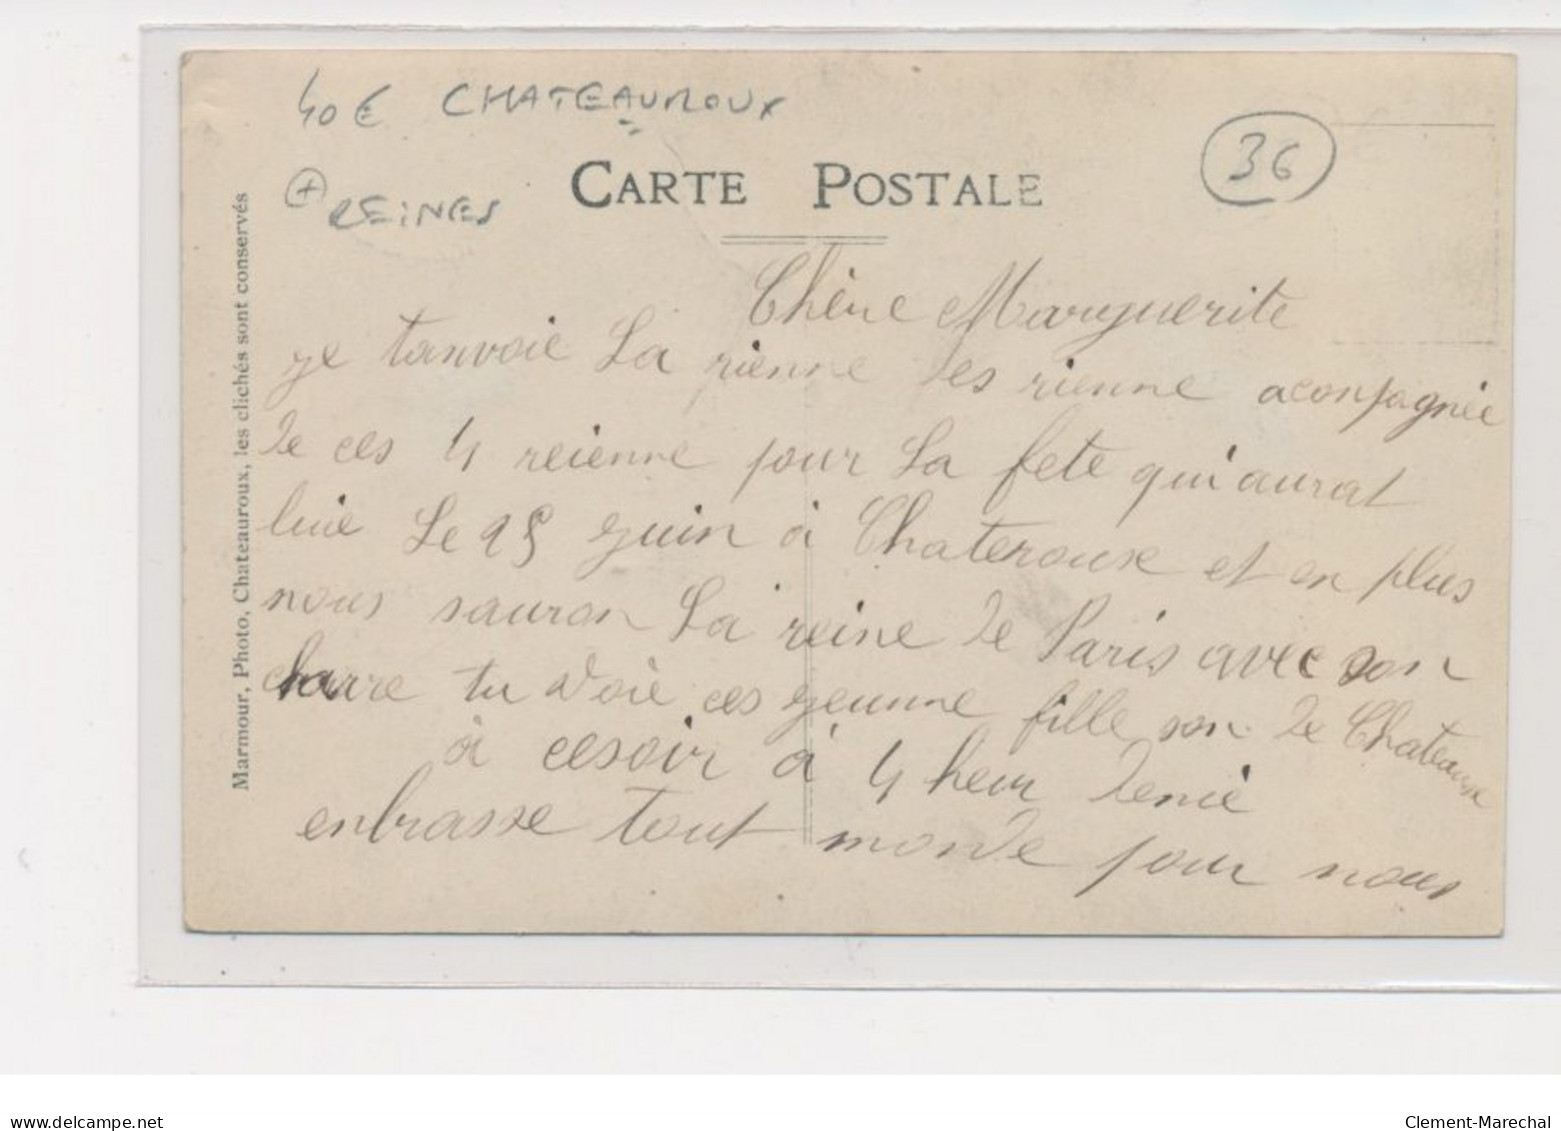 40€ CHATEAUROUX
36
+ REINES
CARTE POSTALE
Marmour, Photo, Chateauroux, les clichés sont conservés
Chère Marguerite
je tanvoie La rienne des rienne aconpagnée
de ces 4 reienne pour La fete qui aurat
lieie Le 25 juin à Chateroux et en plus
nous sauron La reine de Paris avec son
charre tu voie ces jeunne fille son de Chateaux
à cesoir à 4 heur denié
enbrasse tout monde pour nous
www.delcampe.net
Clement-Marechal